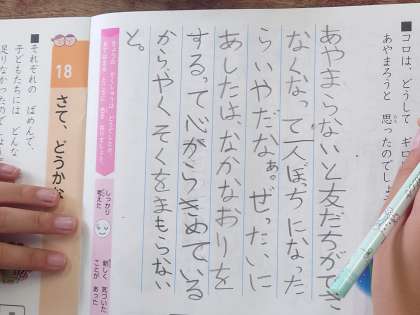 ■コロは、どうして ギロ
あやまろうと 思ったのでしょ
あやまらないと友だちができ
なくなって一人ぼっちになった
らいやだなぁ。ぜったいに
あしたは、なかなおりを
するって心がらきめている
からやくそくをまもらない
と。
しっかり
考えた
新しく 気づいた
ことが あった
18 さて、どうかな
■それぞれの ばめんで、
子どもたちには どんな
足りなかったのでしょ